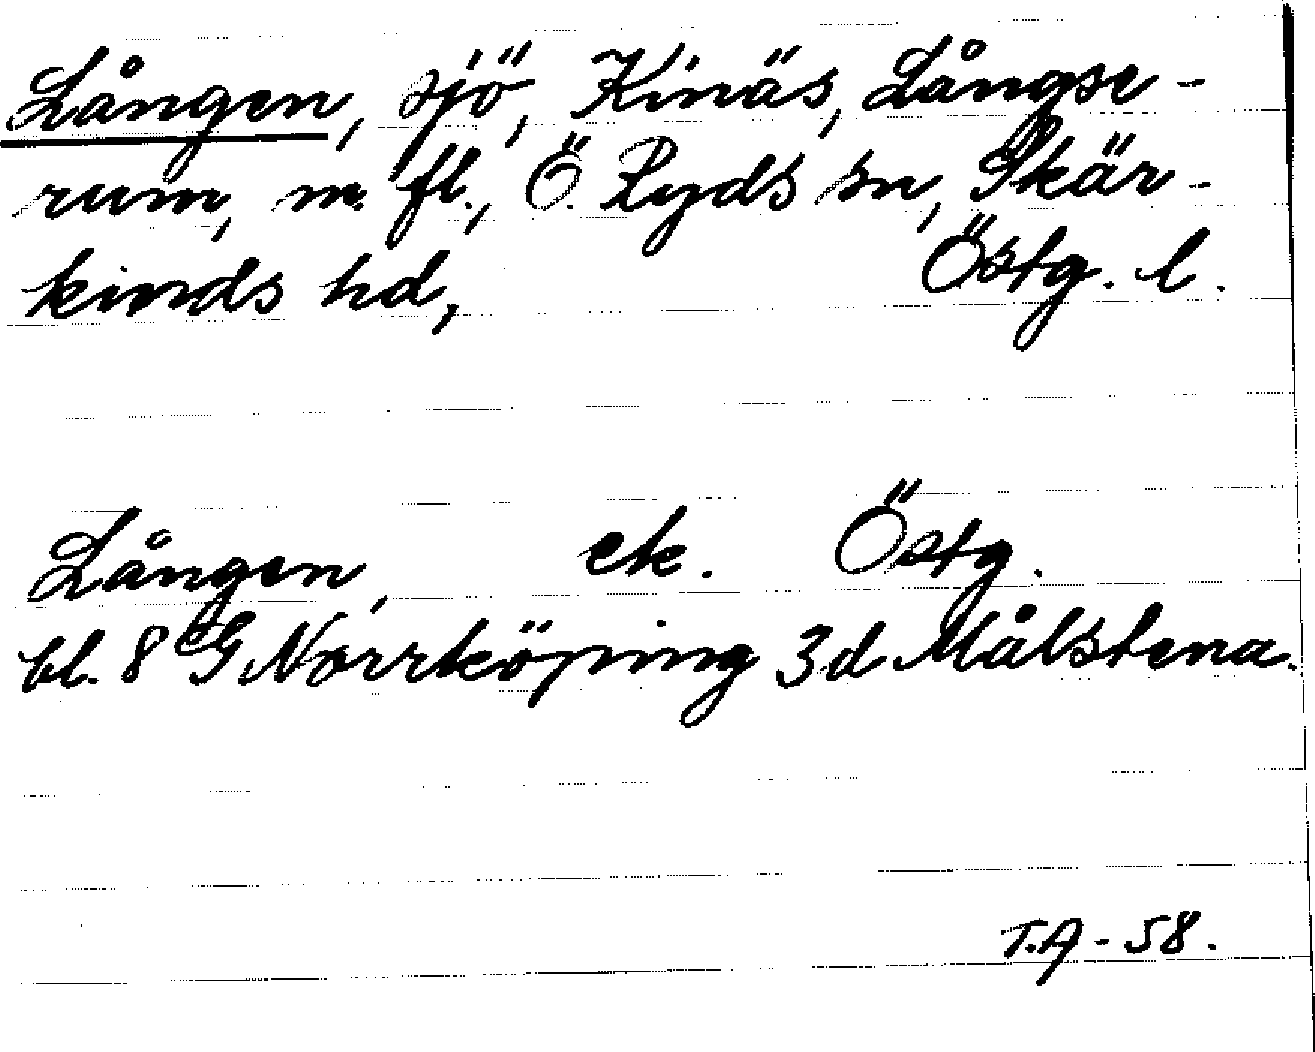 Lången, sjö, Kinäs, Långse-
rum, m. fl., Ö. Ryds sn, Skär-
kinds hd, Östg. l.
Lången, ek. Östg.
bl. 8 G Norrköping 3d Målstena.
T.A-58.